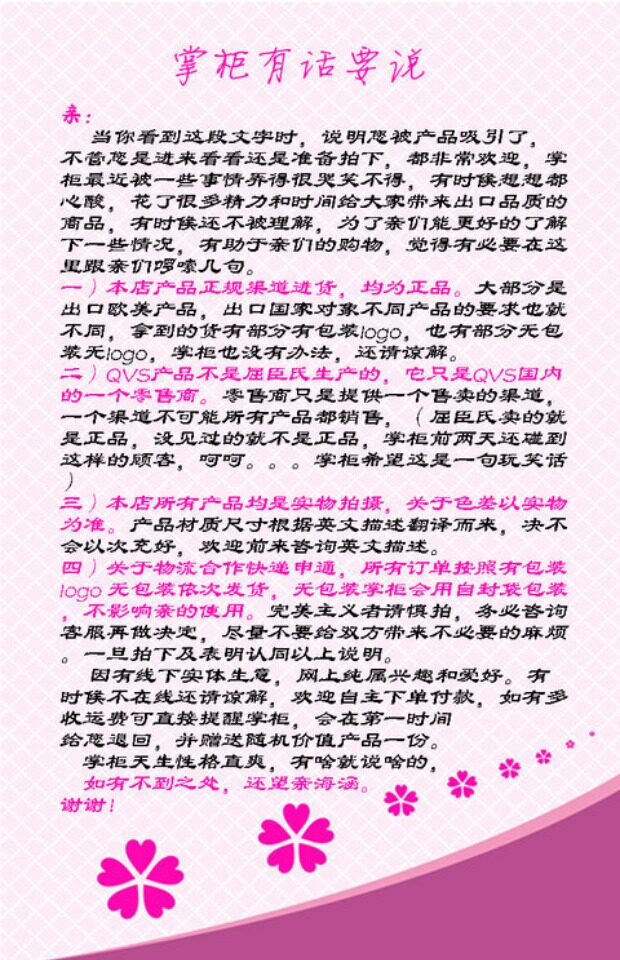 掌柜有话要说
亲：
当你看到这段文字时，说明您被产品吸引了，
不管您是进来看看还是准备拍下，都非常欢迎，掌
柜最近被一些事情弄得很哭笑不得，有时候想想都
心酸，花了很多精力和时间给大家带来出口品质的
商品，有时候还不被理解，为了亲们能更好的了解
下一些情况，有助于亲们的购物，觉得有必要在这
里跟亲们啰嗦几句。
一）本店产品正规渠道进货，均为正品。大部分是
出口欧美产品，出口国家对象不同产品的要求也就
不同，拿到的货有部分有包装logo，也有部分无包
装无logo，掌柜也没有办法，还请谅解。
二）QVS产品不是屈臣氏生产的，它只是QVS国内
的一个零售商。零售商只是提供一个售卖的渠道，
一个渠道不可能所有产品都销售，（屈臣氏卖的就
是正品，没见过的就不是正品，掌柜前两天还碰到
这样的顾客，呵呵。。。掌柜希望这是一句玩笑话
）
三）本店所有产品均是实物拍摄，关于色差以实物
为准。产品材质尺寸根据英文描述翻译而来，决不
会以次充好，欢迎前来咨询英文描述。
四）关于物流合作快递申通，所有订单按照有包装
logo 无包装依次发货，无包装掌柜会用自封袋包装
，不影响亲的使用。完美主义者请慎拍，务必咨询
客服再做决定，尽量不要给双方带来不必要的麻烦
。一旦拍下及表明认同以上说明。
因有线下实体生意，网上纯属兴趣和爱好。有
时候不在线还请谅解，欢迎自主下单付款，如有多
收运费可直接提醒掌柜，会在第一时间
给您退回，并赠送随机价值产品一份。
掌柜天生性格直爽，有啥就说啥的，
如有不到之处，还望亲海涵。
谢谢！